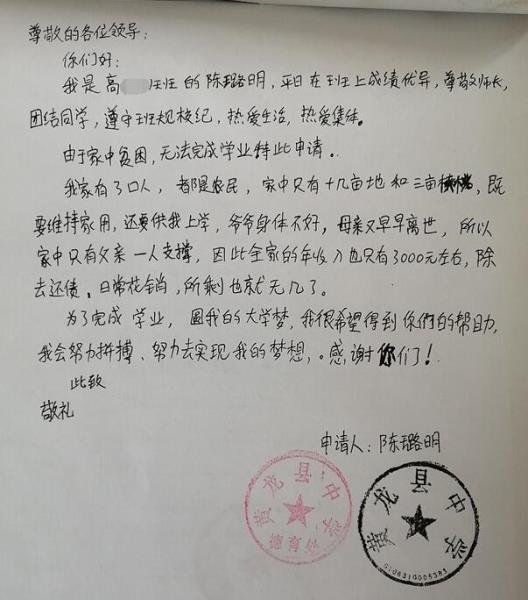 尊敬的各位领导：
你们好：
我是高 班 的陈璐明，平日在班上成绩优异，尊敬师长，
团结同学，遵守班规校纪，热爱生活，热爱集体。
由于家中贫困，无法完成学业特此申请。
我家有3口人，都是农民，家中只有十几亩地和三亩核桃，既
要维持家用，还要供我上学，爷爷身体不好，母亲又早早离世，所以
家中只有父亲一人支撑，因此全家的年收入也只有3000元左右，除
去还债、日常花销，所剩也就无几了。
为了完成学业，圆我的大学梦，我很希望得到你們的帮助，
我会努力拼搏、努力去实现我的梦想，。感谢你们！
此致
敬礼
申请人：陈璐明
黄龙县中学
德育处
黄龙县中学